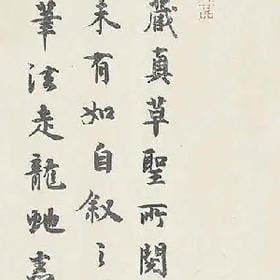 藏真草聖所閱
未有如自叙之
筆法走龍虵憲